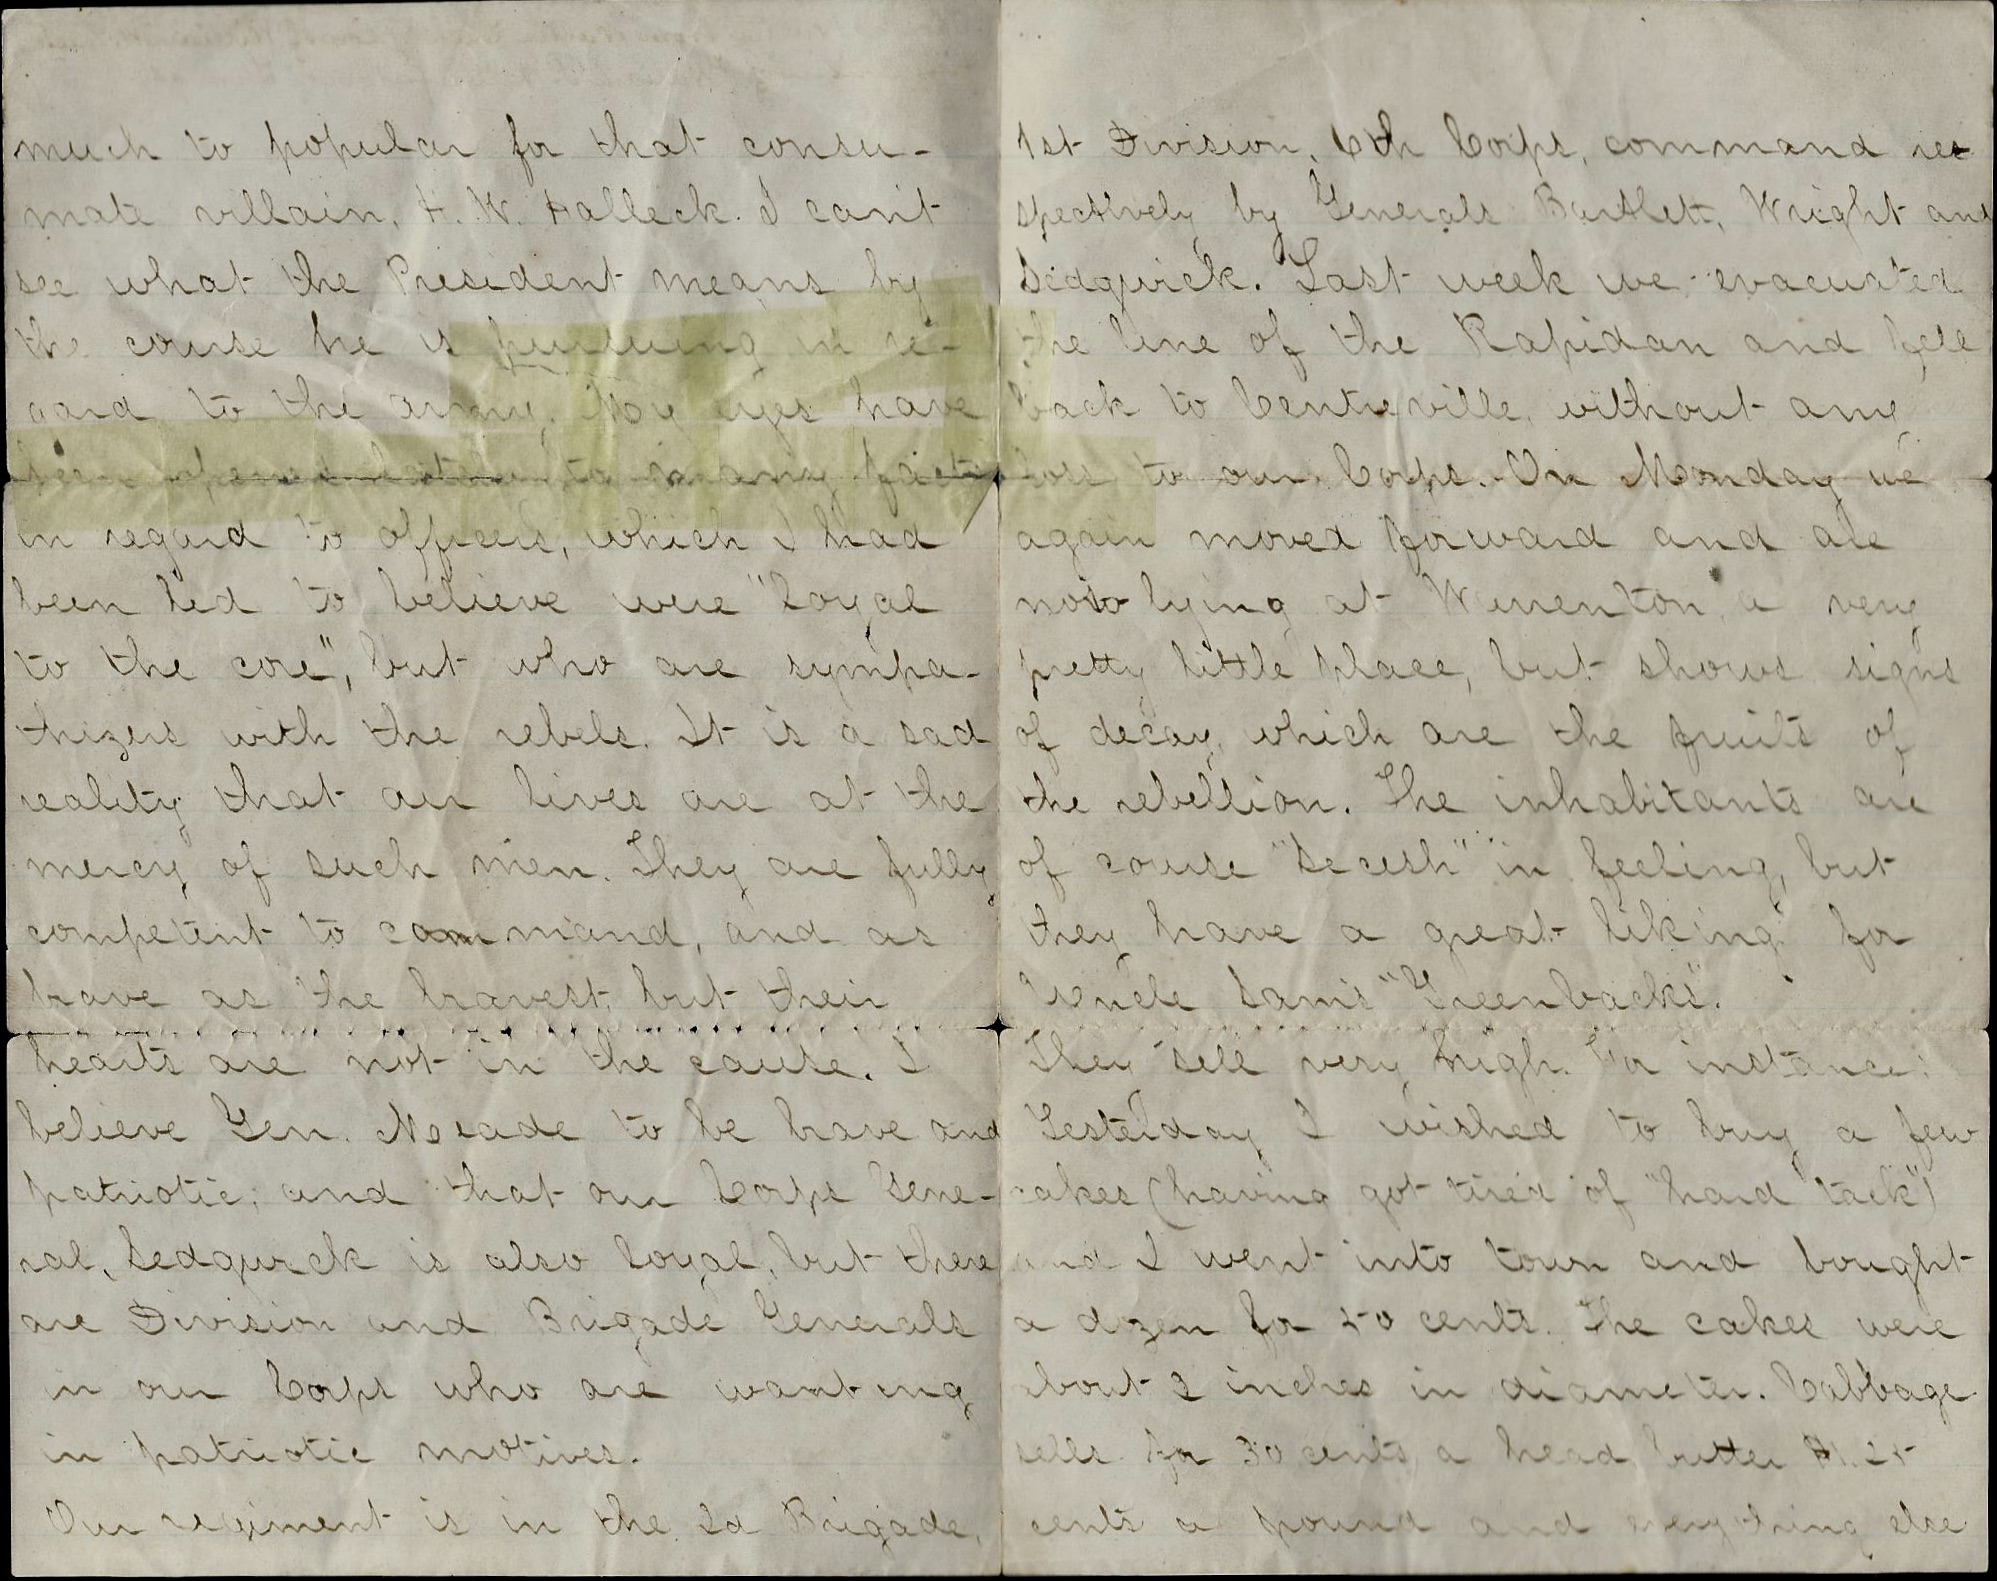 much to popular for that consu-
mate villain, H. W. Halleck. I can't
see what the President means by
the course he is pursueing in re-
gard to the army. My eyes have
been opened lately to many facts
in regard to officers, which I had
been led to believe were "loyal
to the core", but who are sympa-
thizers with the rebels. It is a sad
reality that our lives are at the
mercy of such men. They are fully
competent to command, and as
brave as the bravest, but their
hearts are not in the cause. I
believe Gen. Meade to be brave and
patriotic; and that our Corps Gene-
ral, Sedgwick is also loyal, but there
are Division and Brigade Generals
in our Corps who are wanting
in patriotic motives.
Our regiment is in the 2d Brigade,
1st Division, 6th Corps, command res
spectively by Generals Bartlett, Wright and
Sedgwick. Last week we evacuated
the line of the Rapidan and fell
back to Centreville, without any
loss to our Corps. On Monday we
again moved forward and are
now lying at Warrenton a very
pretty little place, but shows signs
of decay, which are the fruits of
the rebellion. The inhabitants are
of course "Secesh" in feeling, but
they have a great liking for
Uncle Sam's "Greenbacks".
They sell very high. For instance:
Yesterday I wished to buy a few
cakes (having got tired of "hard tack")
and I went into town and bought
a dozen for 50 cents. The cakes were
about 2 inches in diameter. Cabbage
sells for 30 cents a head butter $1.25
cents a pound and everything else